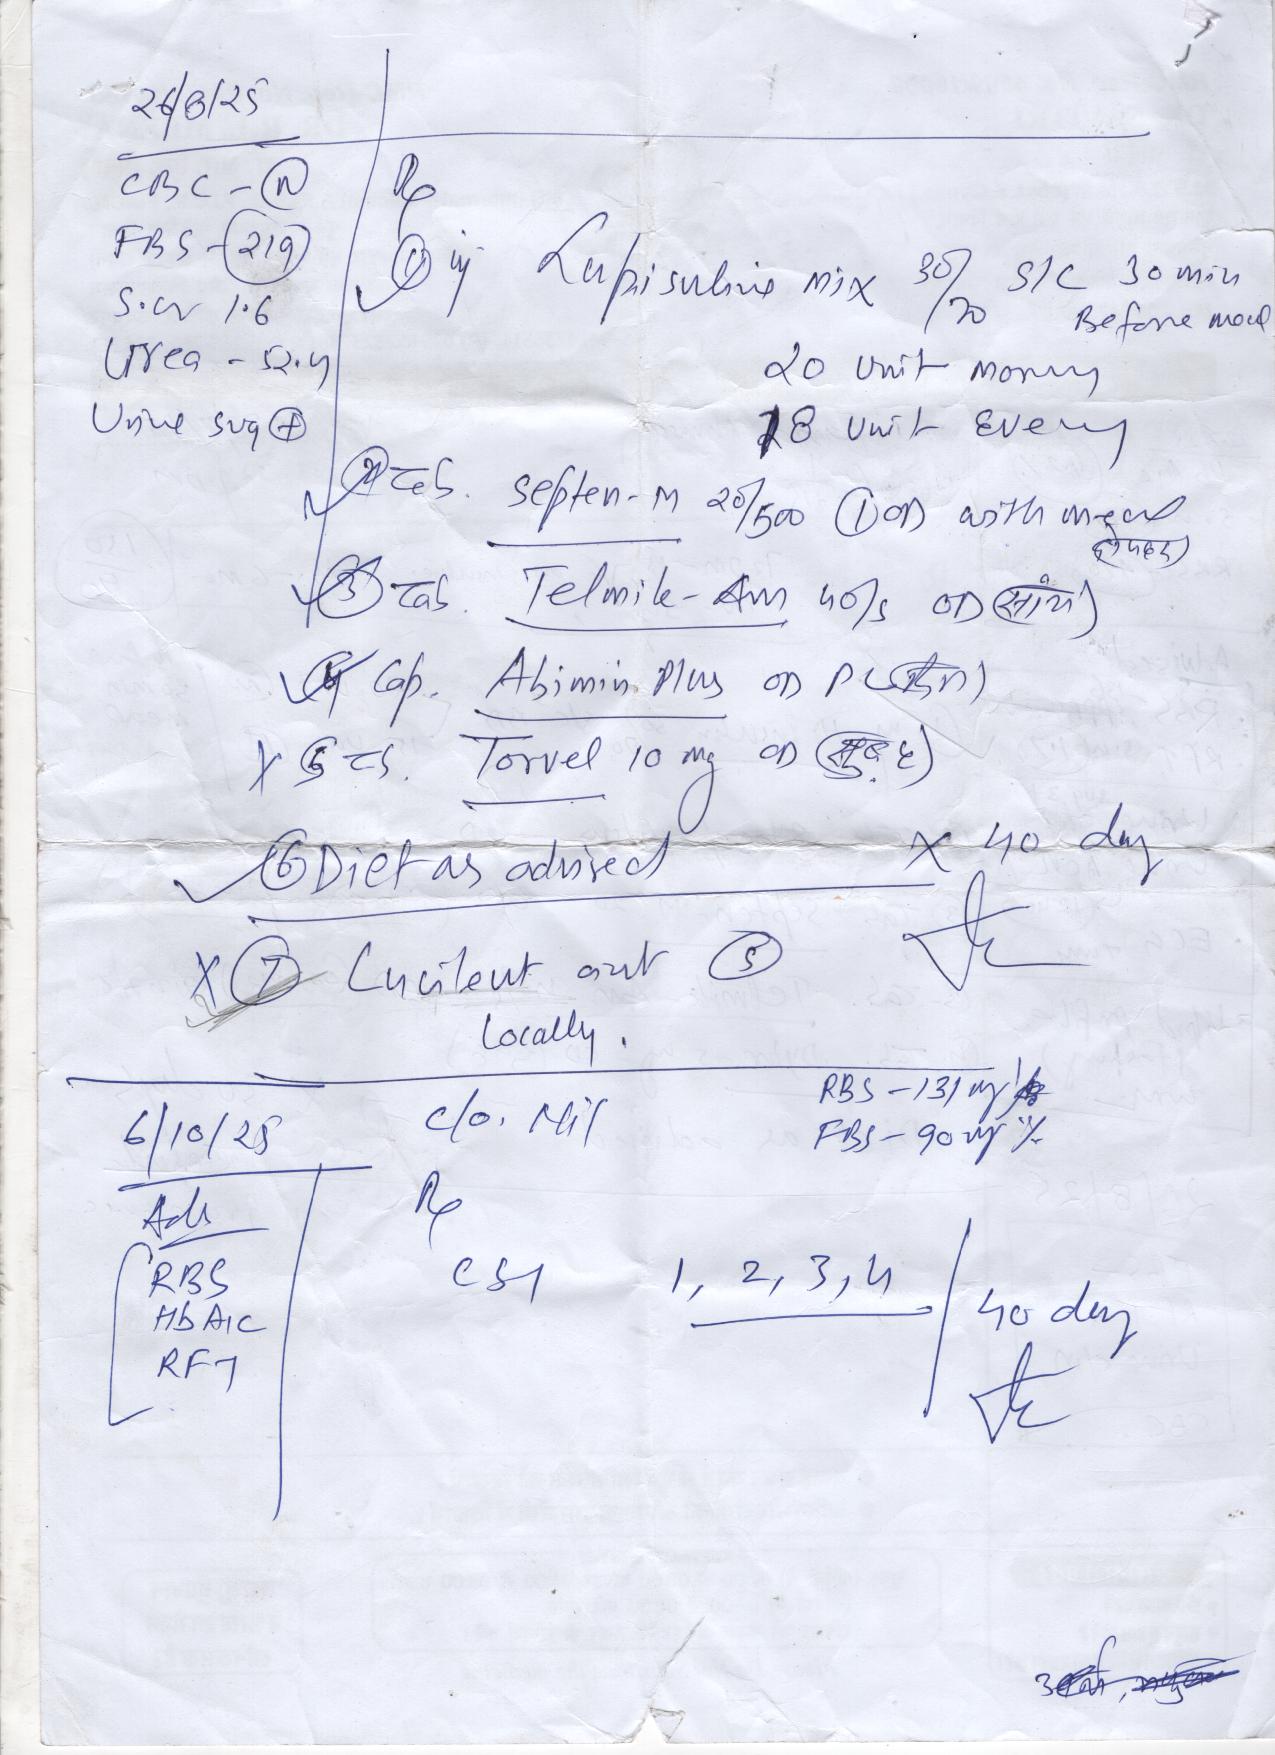 26/8/25
CBC - (N)
FBS - (219)
S.cr 1.6
Urea - 52.4
Urine sug (+)
Rx
① inj Lupisuline mix 30/70 S/C 30 min
Before meal
20 unit morny
18 unit Eveny
② Tab. septen-M 20/500 ① OD with meal
(दोपहर)
③ Tab. Telmik-Am 40/5 OD (सायं)
④ Cap. Abimin Plus OD PC (दिन)
5 Tab. Torvel 10 mg OD (सुबह)
⑥ Diet as advised × 40 day
⑦ oint ⑤
Locally.
6/10/25 c/o. Nil RBS - 131 mg%
FBS - 90 mg%
Adv
RBS
HbA1C
RFT
Rx
CST 1, 2, 3, 4 / 40 day